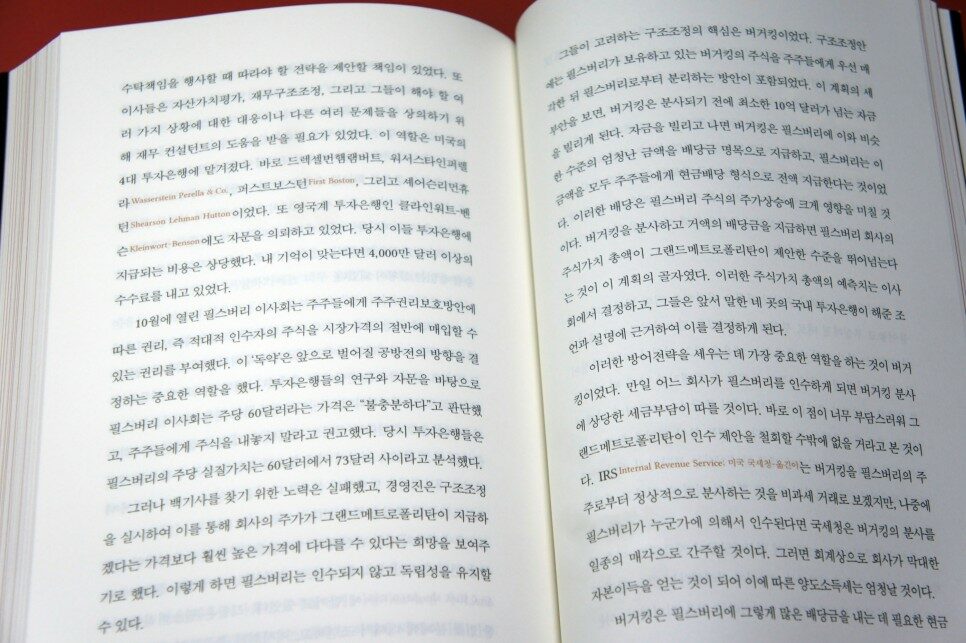 수탁책임을 행사할 때 따라야 할 전략을 제안할 책임이 있었다. 또
이사들은 자산가치평가, 재무구조조정, 그리고 그들이 해야 할 여
러 가지 상황에 대한 대응이나 다른 여러 문제들을 상의하기 위
해 재무 컨설턴트의 도움을 받을 필요가 있었다. 이 역할은 미국의
4대 투자은행에 맡겨졌다. 바로 드렉셀번햄램버트, 워서스타인퍼렐
라Wasserstein Perella & Co., 퍼스트보스턴First Boston, 그리고 셰어슨리먼휴
턴Shearson Lehman Hutton이었다. 또 영국계 투자은행인 클라인워트-벤
슨Kleinwort-Benson에도 자문을 의뢰하고 있었다. 당시 이들 투자은행에
지급되는 비용은 상당했다. 내 기억이 맞는다면 4,000만 달러 이상의
수수료를 내고 있었다.
10월에 열린 필스버리 이사회는 주주들에게 주주권리보호방안에
따른 권리, 즉 적대적 인수자의 주식을 시장가격의 절반에 매입할 수
있는 권리를 부여했다. 이 ‘독약’은 앞으로 벌어질 공방전의 방향을 결
정하는 중요한 역할을 했다. 투자은행들의 연구와 자문을 바탕으로
필스버리 이사회는 주당 60달러라는 가격은 “불충분하다”고 판단했
고, 주주들에게 주식을 내놓지 말라고 권고했다. 당시 투자은행들은
필스버리의 주당 실질가치는 60달러에서 73달러 사이라고 분석했다.
그러나 백기사를 찾기 위한 노력은 실패했고, 경영진은 구조조정
을 실시하여 이를 통해 회사의 주가가 그랜드메트로폴리탄이 지급하
겠다는 가격보다 훨씬 높은 가격에 다다를 수 있다는 희망을 보여주
기로 했다. 이렇게 하면 필스버리는 인수되지 않고 독립성을 유지할
수 있다.
그들이 고려하는 구조조정의 핵심은 버거킹이었다. 구조조정안
에는 필스버리가 보유하고 있는 버거킹의 주식을 주주들에게 우선 매
각한 뒤 필스버리로부터 분리하는 방안이 포함되었다. 이 계획의 세
부안을 보면, 버거킹은 분사되기 전에 최소한 10억 달러가 넘는 자금
을 빌리게 된다. 자금을 빌리고 나면 버거킹은 필스버리에 이와 비슷
한 수준의 엄청난 금액을 배당금 명목으로 지급하고, 필스버리는 이
금액을 모두 주주들에게 현금배당 형식으로 전액 지급한다는 것이었
다. 이러한 배당은 필스버리 주식의 주가상승에 크게 영향을 미칠 것
이다. 버거킹을 분사하고 거액의 배당금을 지급하면 필스버리 회사의
주식가치 총액이 그랜드메트로폴리탄이 제안한 수준을 뛰어넘는다
는 것이 이 계획의 골자였다. 이러한 주식가치 총액의 예측치는 이사
회에서 결정하고, 그들은 앞서 말한 네 곳의 국내 투자은행이 해준 조
언과 설명에 근거하여 이를 결정하게 된다.
이러한 방어전략을 세우는 데 가장 중요한 역할을 하는 것이 버거
킹이었다. 만일 어느 회사가 필스버리를 인수하게 되면 버거킹 분사
에 상당한 세금부담이 따를 것이다. 바로 이 점이 너무 부담스러워 그
랜드메트로폴리탄이 인수 제안을 철회할 수밖에 없을 거라고 본 것이
다. IRS Internal Revenue Service: 미국 국세청-옮긴이는 버거킹을 필스버리의 주
주로부터 정상적으로 분사하는 것을 비과세 거래로 보겠지만, 나중에
필스버리가 누군가에 의해서 인수된다면 국세청은 버거킹의 분사를
일종의 매각으로 간주할 것이다. 그러면 회계상으로 회사가 막대한
자본이득을 얻는 것이 되어 이에 따른 양도소득세는 엄청날 것이다.
버거킹은 필스버리에 그렇게 많은 배당금을 내는 데 필요한 현금